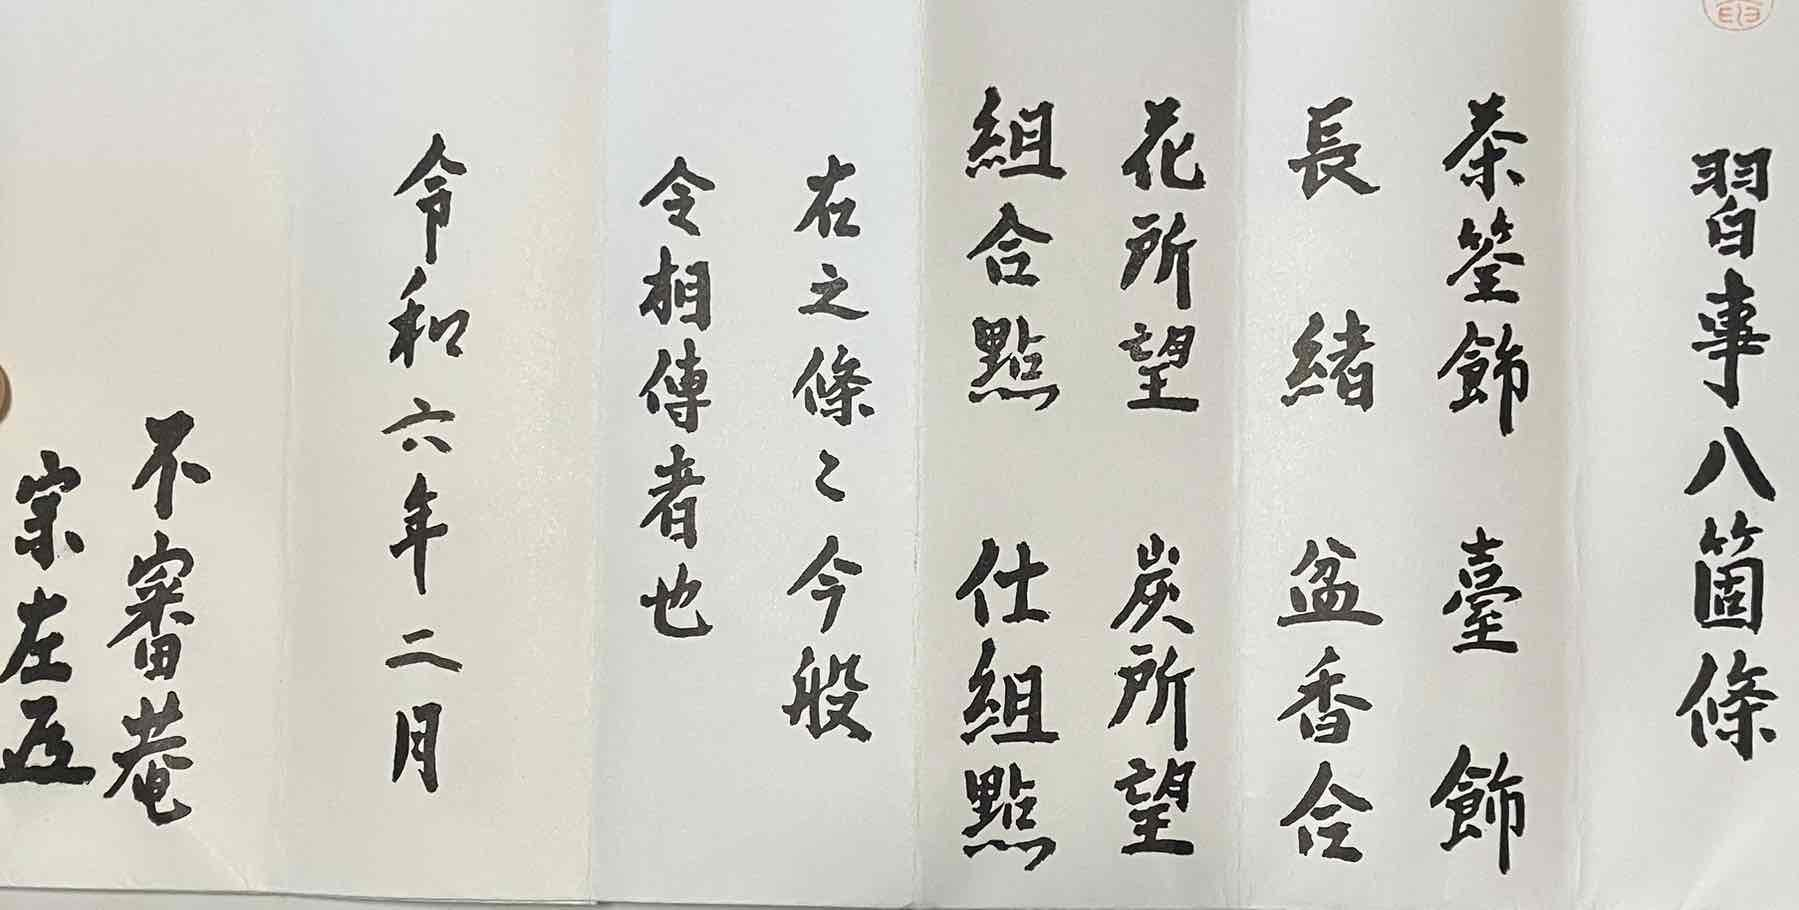 習事八箇條
茶筌飾　臺飾
長緒　盆香合
花所望　炭所望
組合點　仕組點
在之條々今般
令相傳者也
令和六年二月
不審菴
宗左